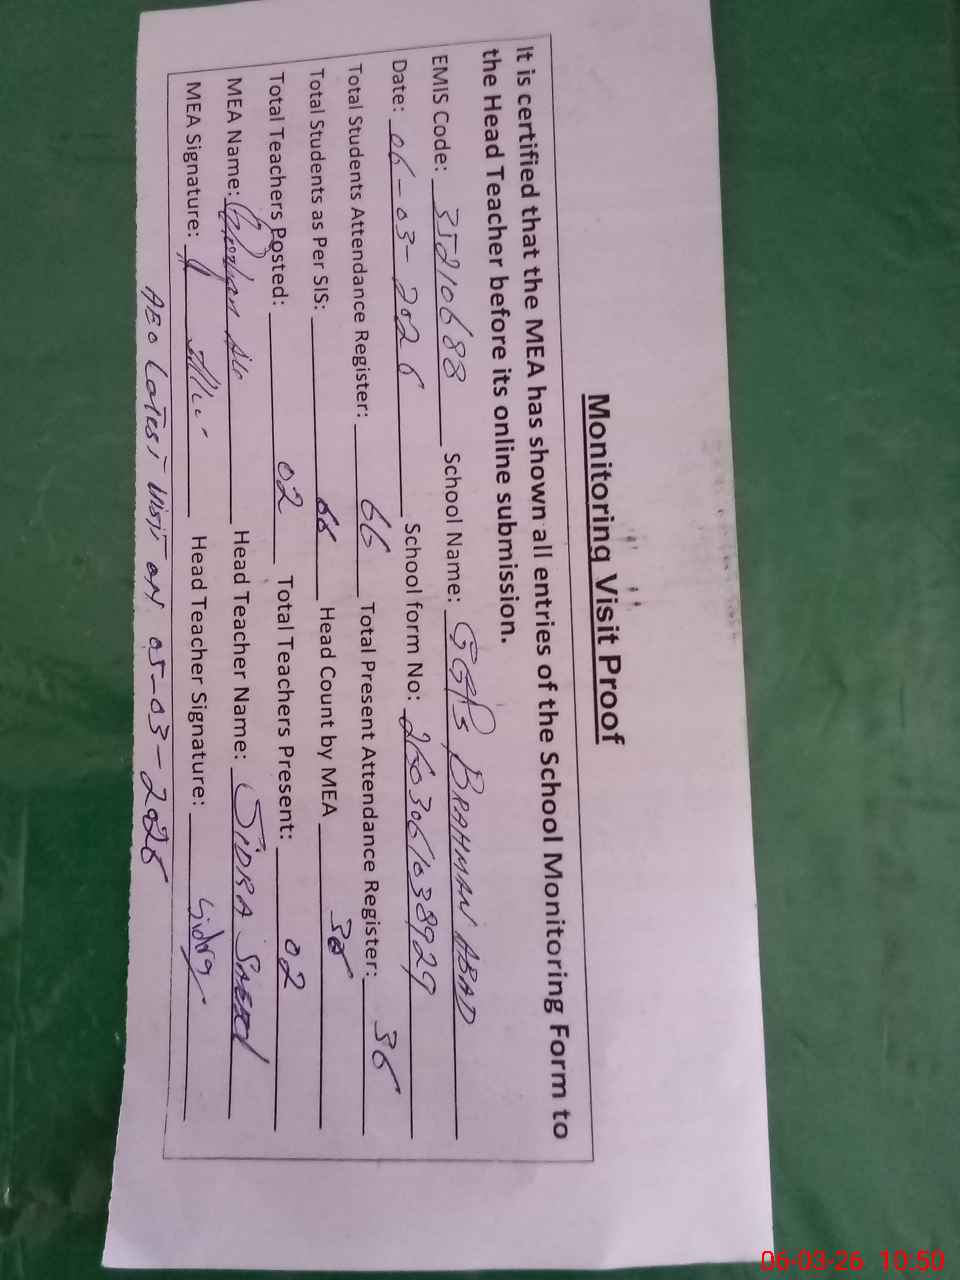 Monitoring Visit Proof
It is certified that the MEA has shown all entries of the School Monitoring Form to
the Head Teacher before its online submission.
EMIS Code: 35210688 School Name: GGPS BRAHMAN ABAD
Date: 06-03-2026 School form No: 2603061038929
Total Students Attendance Register: 66 Total Present Attendance Register: 36
Total Students as Per SIS: 66 Head Count by MEA 36
Total Teachers Posted: 02 Total Teachers Present: 02
MEA Name: Head Teacher Name: SIDRA SAEED
MEA Signature: Head Teacher Signature: Sidra
AEO Latest visit on 05-03-2026
06-03-26 10:50